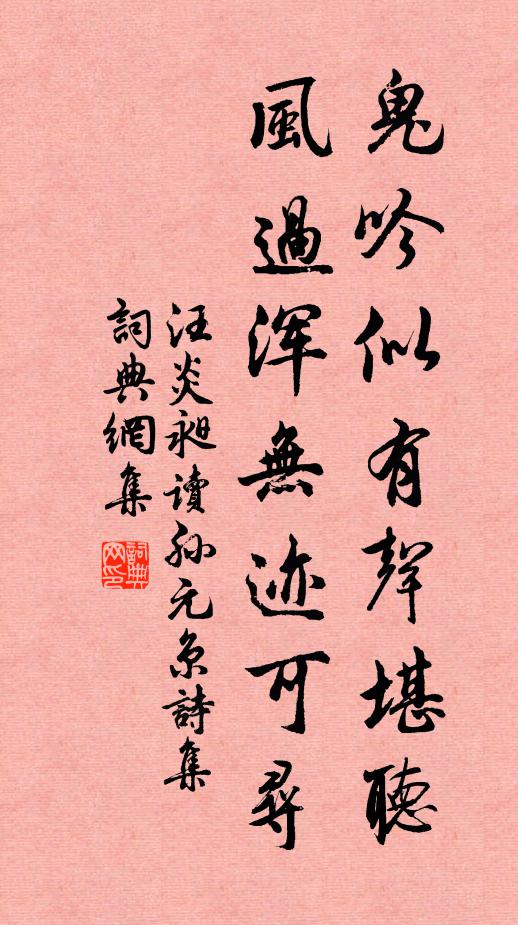 鬼吟似有聲堪聽
風過浑無迹可尋
汪炎昶讀孙元京詩集
詞典網集
詞典網印